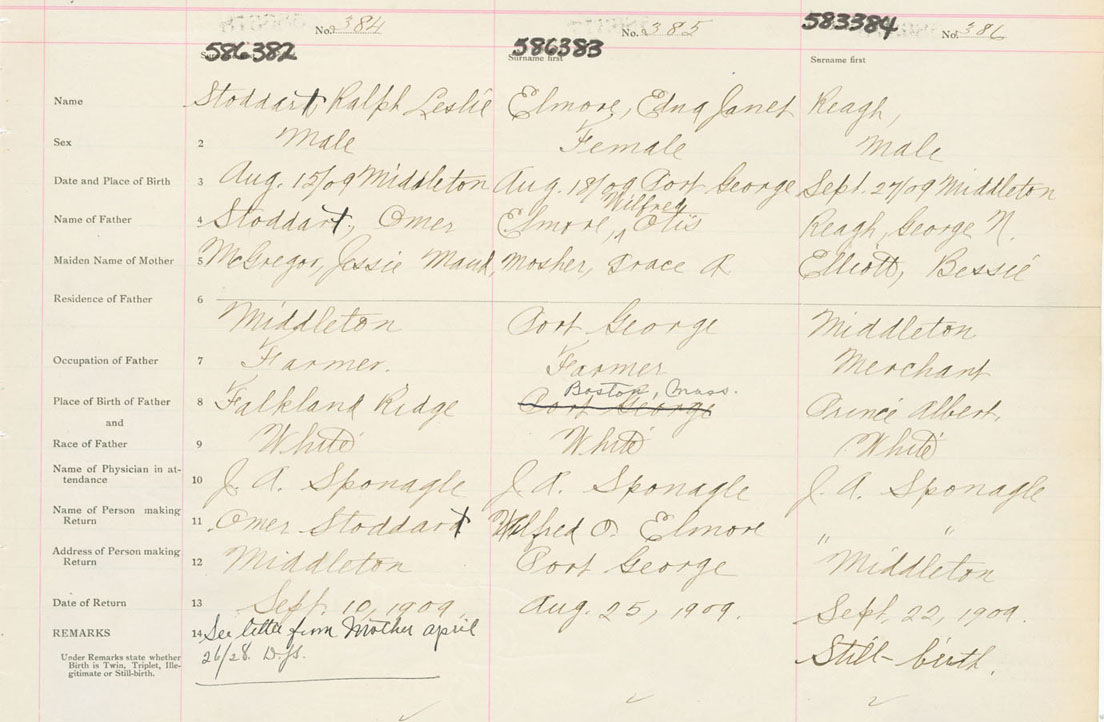 No. 384 No. 385 No. 386
586382 586383 583384
Surname first Surname first
Name Stoddart Ralph Leslie Elmore, Edna Janet Reagh,
Sex 2 Male Female Male
Date and Place of Birth 3 Aug. 15/09 Middleton Aug. 18/09 Port George Sept. 27/09 Middleton
Wilfred
Name of Father 4 Stoddart, Omer Elmore, ^ Otis Reagh, George N.
Maiden Name of Mother 5 McGregor, Jessie Maud, Mosher, Grace A Elliott, Bessie
Residence of Father 6
Middleton Port George Middleton
Occupation of Father 7 Farmer. Farmer Merchant
Boston, Mass.
Place of Birth of Father 8 Falkland Ridge Port George Prince Albert,
and
Race of Father 9 White White White
Name of Physician in at-
tendance 10 J. A. Sponagle J. A. Sponagle J. A. Sponagle
Name of Person making
Return 11 Omer Stoddart Wilfred O. Elmore " "
Address of Person making
Return 12 Middleton Port George Middleton
Date of Return 13 Sept. 10, 1909, Aug. 25, 1909. Sept, 22, 1909.
REMARKS 14 See letter from Mother april
26/28.
Under Remarks state whether
Birth is Twin, Triplet, Ille-
gitimate or Still-birth.
Still-birth.